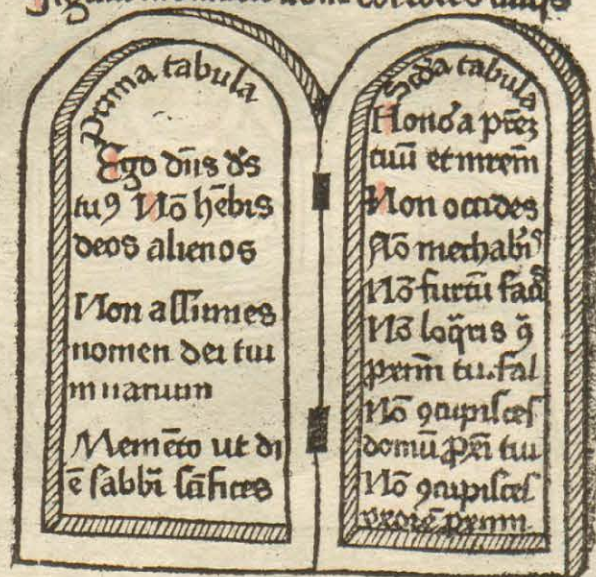 Prima tabula
Ego dn̄s ds̄
tuꝯ Nō hēbis
deos alienos
Non assumes
nomen dei tui
in uanum
Memēto ut di
ē sabbī sc̄ifices
Scd̄a tabula
Honōa pr̄eꝫ
tuū et mr̄em
Non occides
Nō mechabis
Nō furtū faci
Nō loq̄ris ꝯ̄
ꝓxim̄ tu. fal
Nō ꝯcupisces
domū ꝓxi tui
Nō ꝯcupisces
vxorē ꝓximi